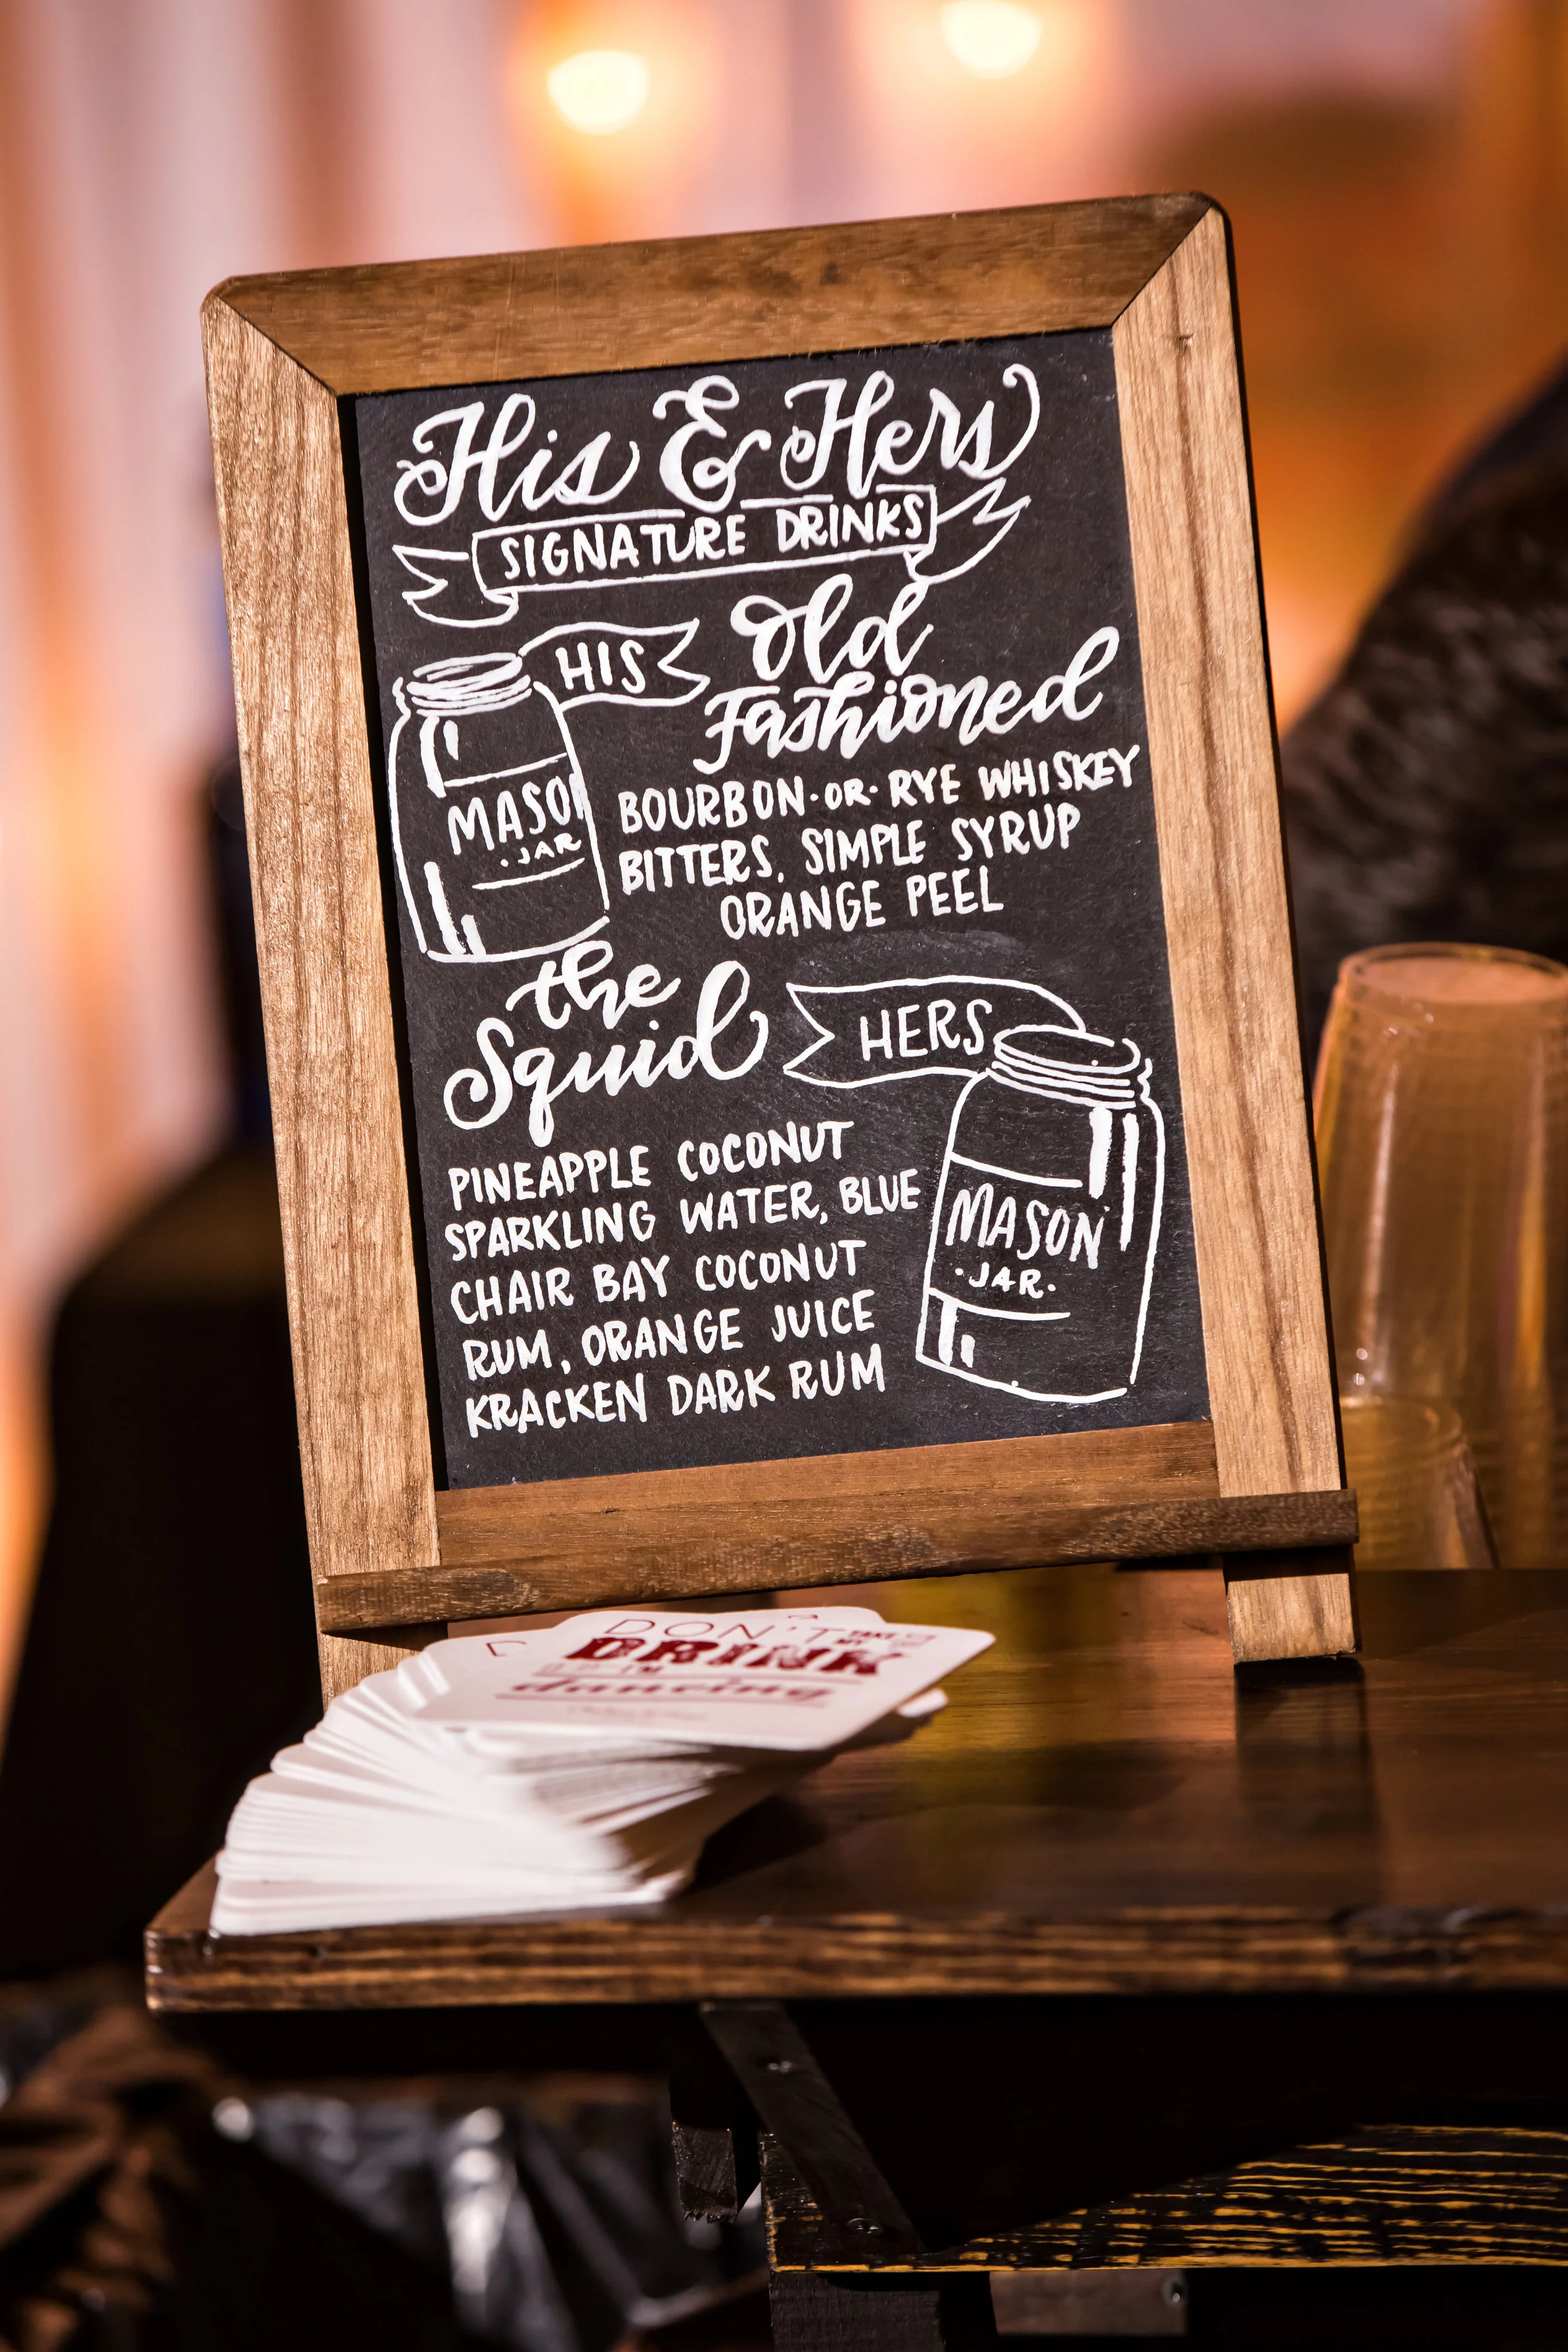 His & Hers
SIGNATURE DRINKS
HIS
Old
Fashioned
MASON
·JAR
BOURBON·OR·RYE WHISKEY
BITTERS, SIMPLE SYRUP
ORANGE PEEL
the
Squid
HERS
PINEAPPLE COCONUT
SPARKLING WATER, BLUE
CHAIR BAY COCONUT
RUM, ORANGE JUICE
KRACKEN DARK RUM
MASON
·JAR·
DON'T
TAKE MY
DRINK
I'M
dancing